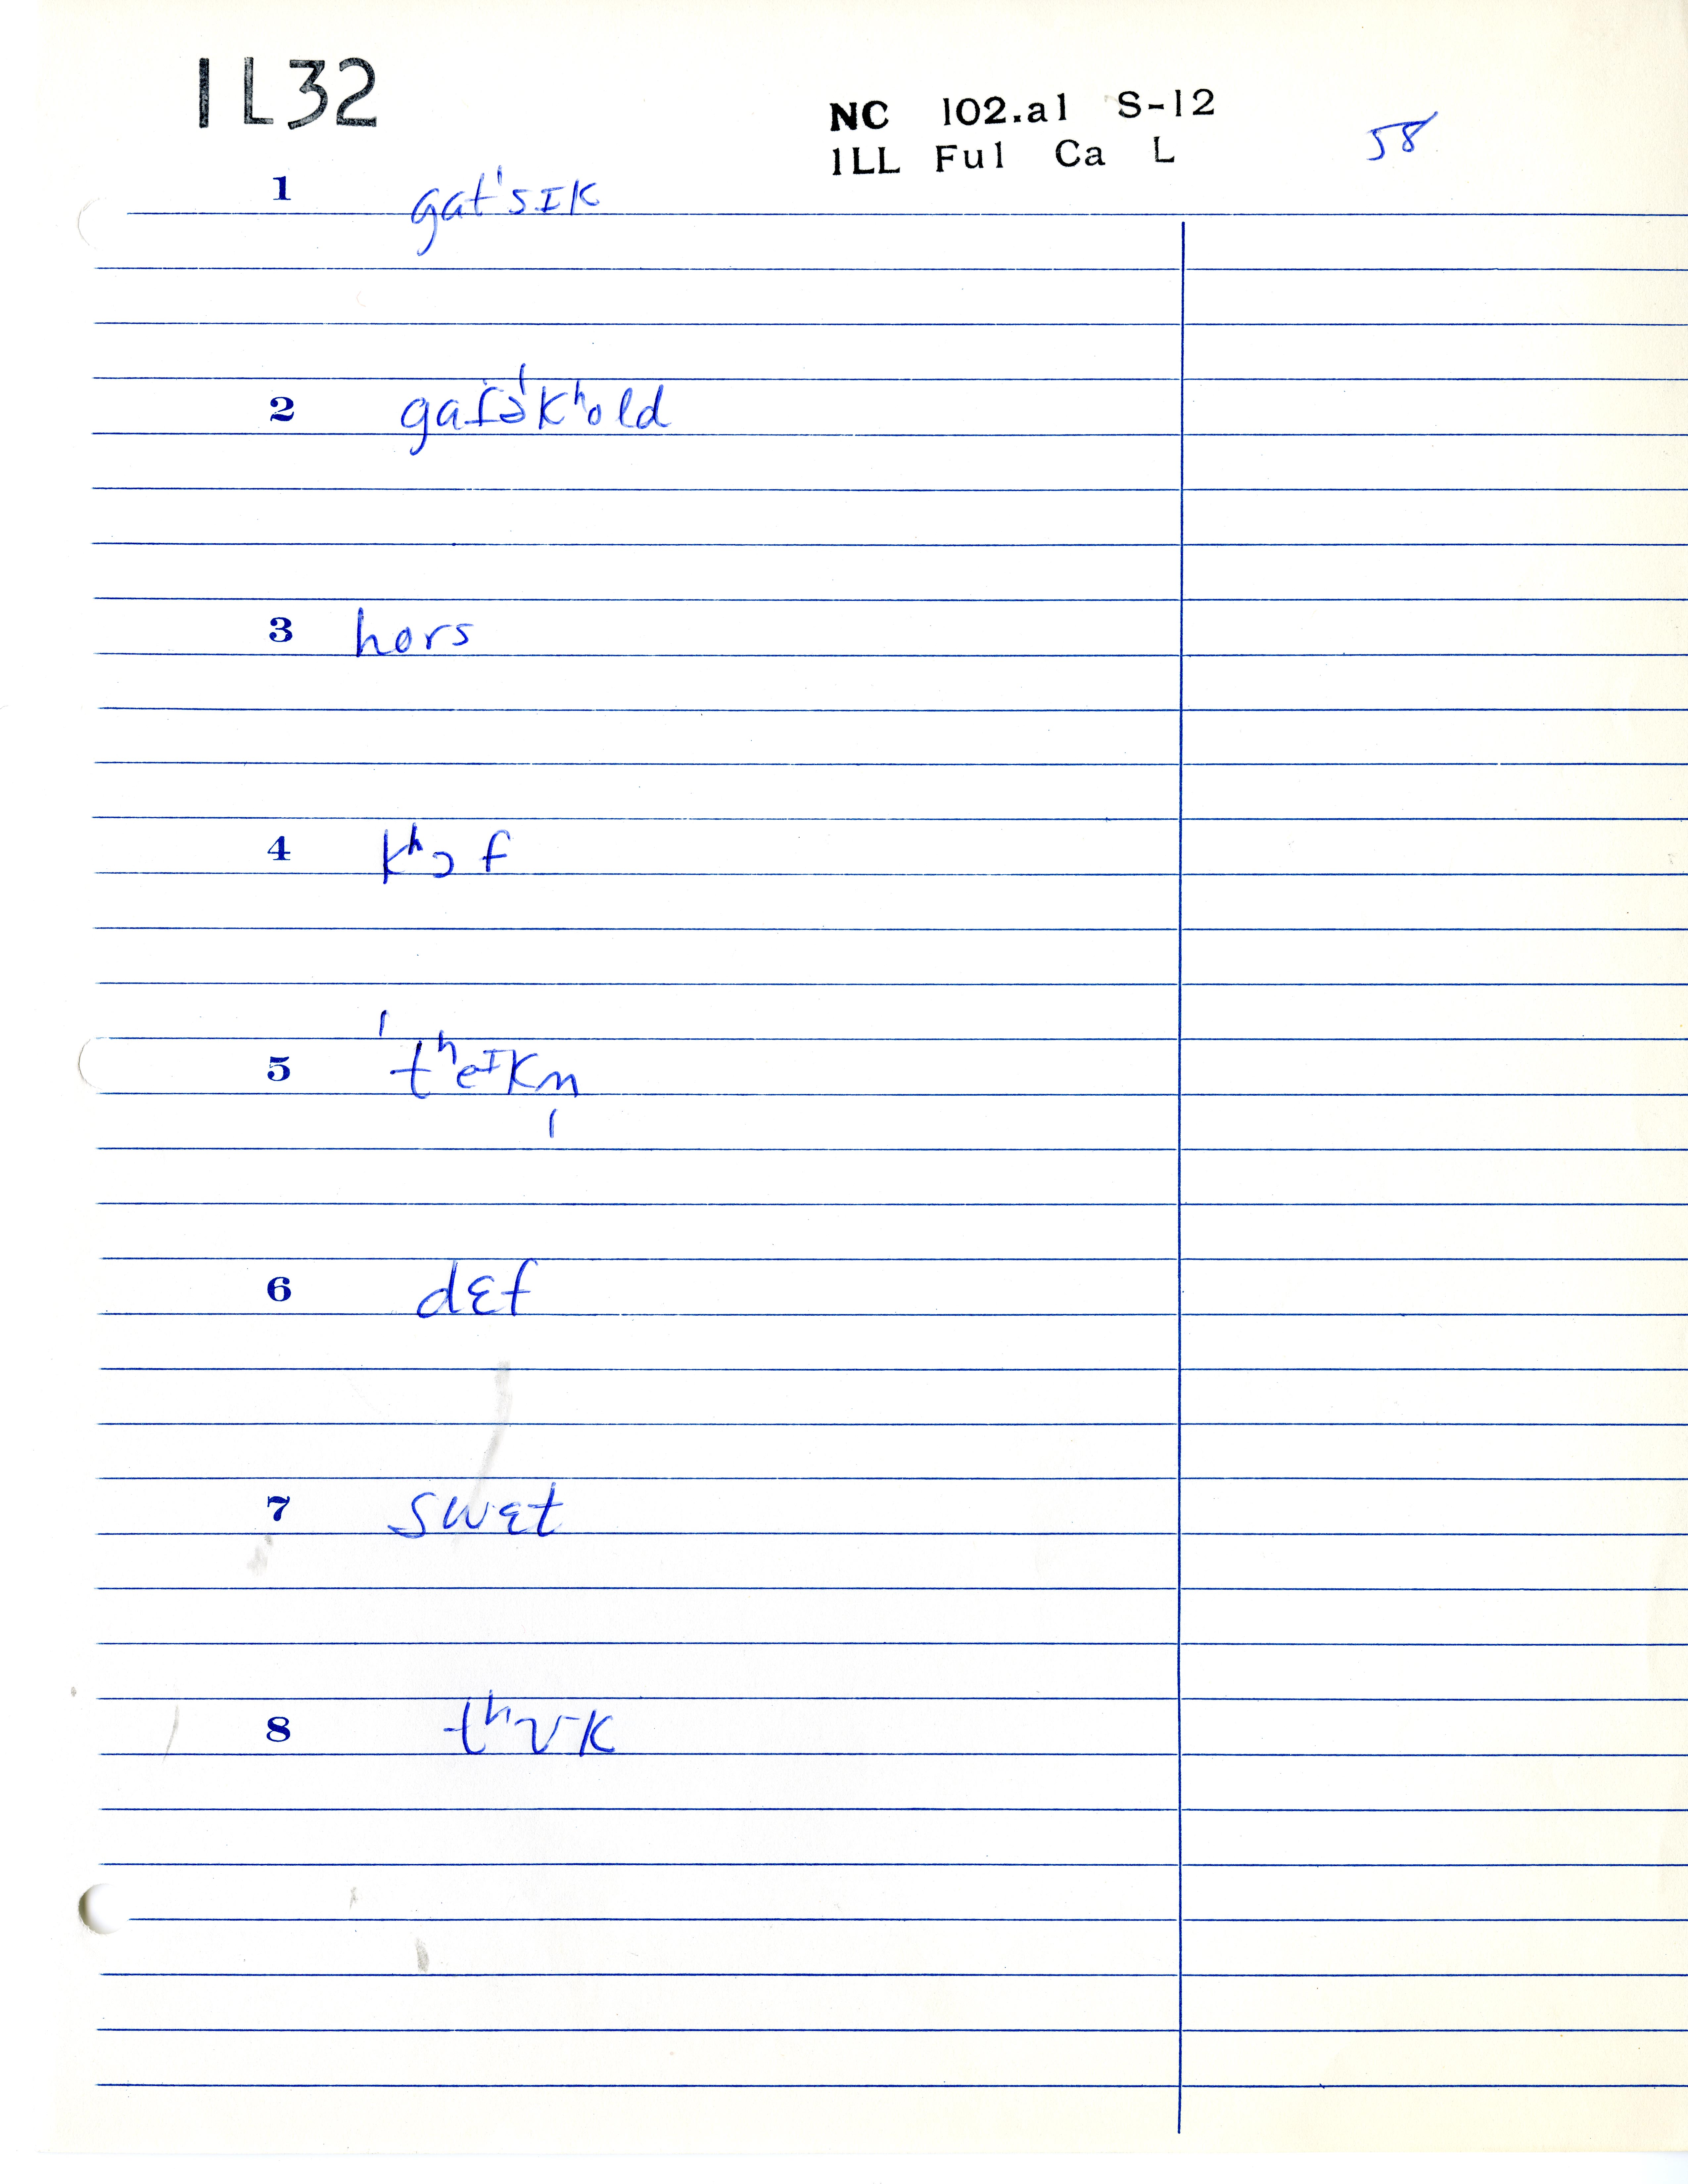 1L32
NC 102.a1 S-12
1LL Ful Ca L
58
1 gatˈsɪk
2 gaɾəˈkʰold
3 hors
4 kʰɔf
5 ˈtʰeᴵkn̩
6 dɛf
7 swɛt
8 tʰʊk